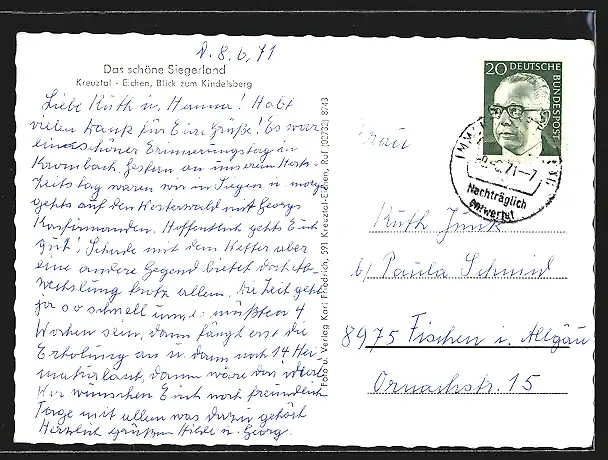 d. 8.6.71
Das schöne Siegerland
Kreuztal - Eichen, Blick zum Kindelsberg
Liebe Ruth u. Hanna! Habt
vielen Dank für Eure Grüße! Es war
ein schöner Erinnerungstag in
Krombach. Gestern an unserem Hoch-
zeitstag waren wir in Siegen u. morgen
gehts auf den Westerwald mit Georgs
Hoffentlich gehts Euch
gut! Schade mit dem Wetter aber
eine andere Gegend bietet doch Ab-
wechslung trotz allem. Die Zeit geht
ja so schnell um, es müßten 4
Wochen sein, dann fängt erst die
Erholung an u. dann noch 14 Hei-
maturlaub, dann wäre das ideal
Wir wünschen Euch noch freundliche
Tage mit allem was dazu gehört
Herzlich grüßen Hilde u. Georg.
Foto u. Verlag Karl Friedrich, 591 Kreuztal-Eichen, Ruf (02732) 8743
20 DEUTSCHE
BUNDESPOST
71-7
Nachträglich
entwertet
Frau
Ruth Junk
b/ Paula Schmid
8975 Fischen i. Allgäu
Ornachstr. 15